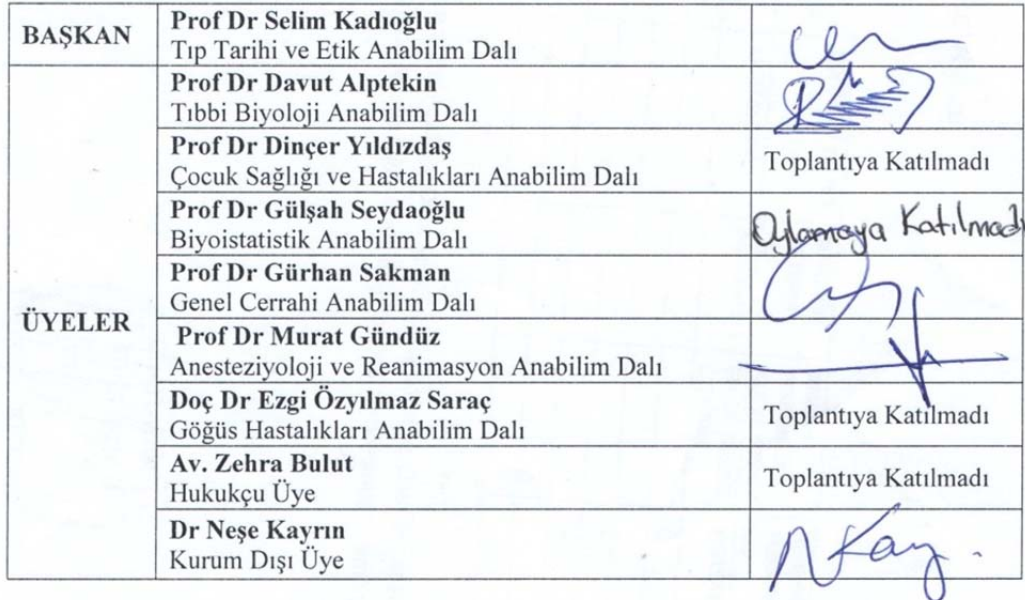 BAŞKAN
Prof Dr Selim Kadıoğlu
Tıp Tarihi ve Etik Anabilim Dalı
ÜYELER
Prof Dr Davut Alptekin
Tıbbi Biyoloji Anabilim Dalı
Prof Dr Dinçer Yıldızdaş
Çocuk Sağlığı ve Hastalıkları Anabilim Dalı
Toplantıya Katılmadı
Prof Dr Gülşah Seydaoğlu
Biyoistatistik Anabilim Dalı
Oylamaya Katılmadı
Prof Dr Gürhan Sakman
Genel Cerrahi Anabilim Dalı
Prof Dr Murat Gündüz
Anesteziyoloji ve Reanimasyon Anabilim Dalı
Doç Dr Ezgi Özyılmaz Saraç
Göğüs Hastalıkları Anabilim Dalı
Toplantıya Katılmadı
Av. Zehra Bulut
Hukukçu Üye
Toplantıya Katılmadı
Dr Neşe Kayrın
Kurum Dışı Üye
N Kay.